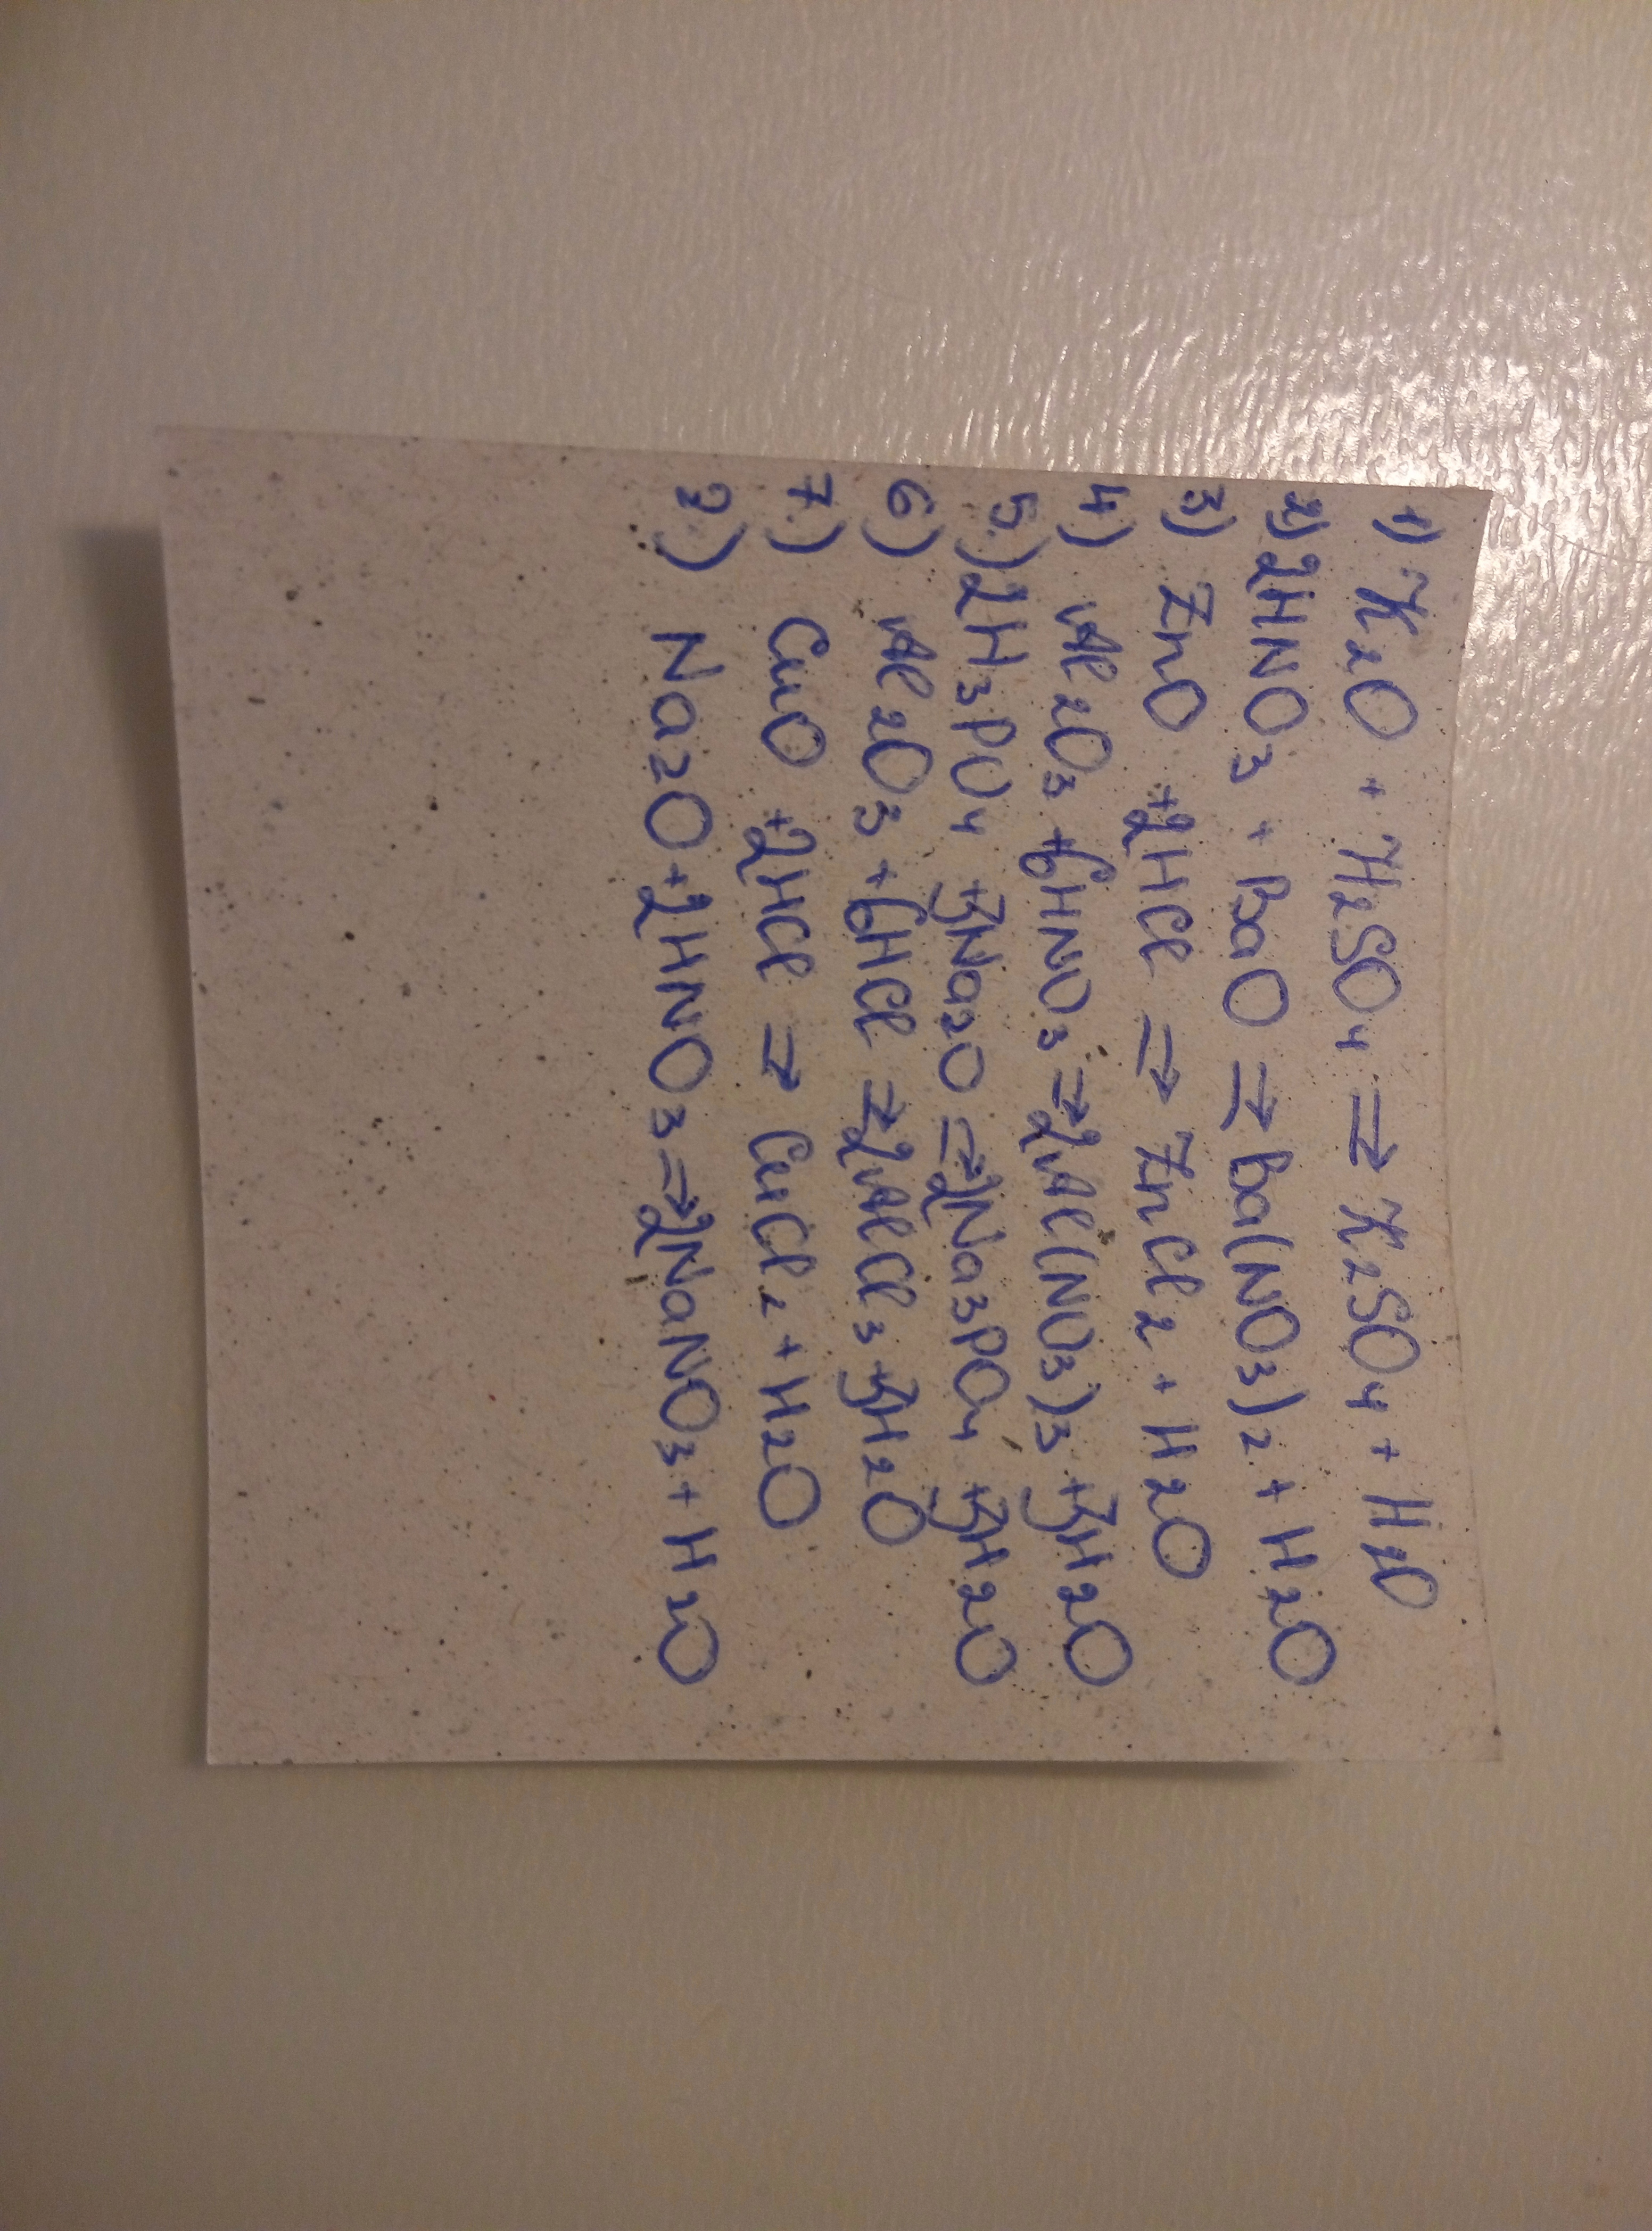 1) K₂O + H₂SO₄ ⇒ K₂SO₄ + H₂O
2) 2HNO₃ + BaO ⇒ Ba(NO₃)₂ + H₂O
3) ZnO + 2HCl ⇒ ZnCl₂ + H₂O
4) Al₂O₃ + 6HNO₃ ⇒ 2Al(NO₃)₃ + 3H₂O
5.) 2H₃PO₄ + 3Na₂O ⇒ 2Na₃PO₄ + 3H₂O
6) Al₂O₃ + 6HCl ⇒ 2AlCl₃ + 3H₂O
7.) CuO + 2HCl ⇒ CuCl₂ + H₂O
2) Na₂O + 2HNO₃ ⇒ 2NaNO₃ + H₂O